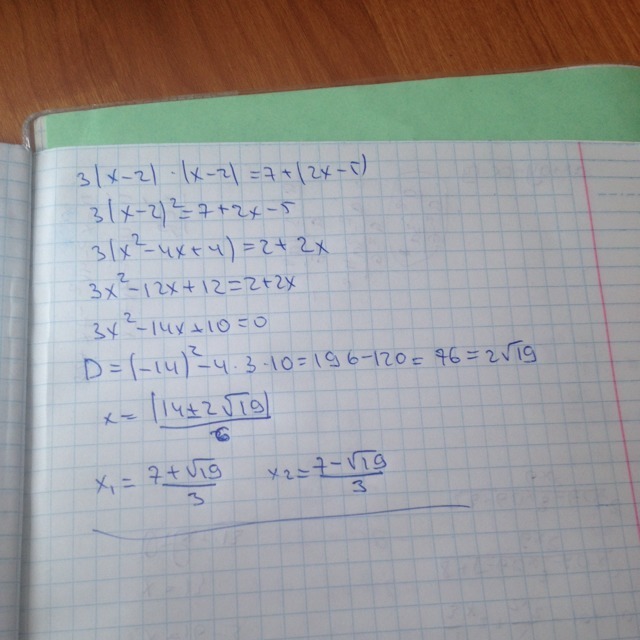 3(x-2) · (x-2) = 7 + (2x-5)
3(x-2)² = 7 + 2x - 5
3(x² - 4x + 4) = 2 + 2x
3x² - 12x + 12 = 2 + 2x
3x² - 14x + 10 = 0
D = (-14)² - 4 · 3 · 10 = 196 - 120 = 76 = 2√19
x = (14 ± 2√19)/6
x₁ = (7 + √19)/3 x₂ = (7 - √19)/3